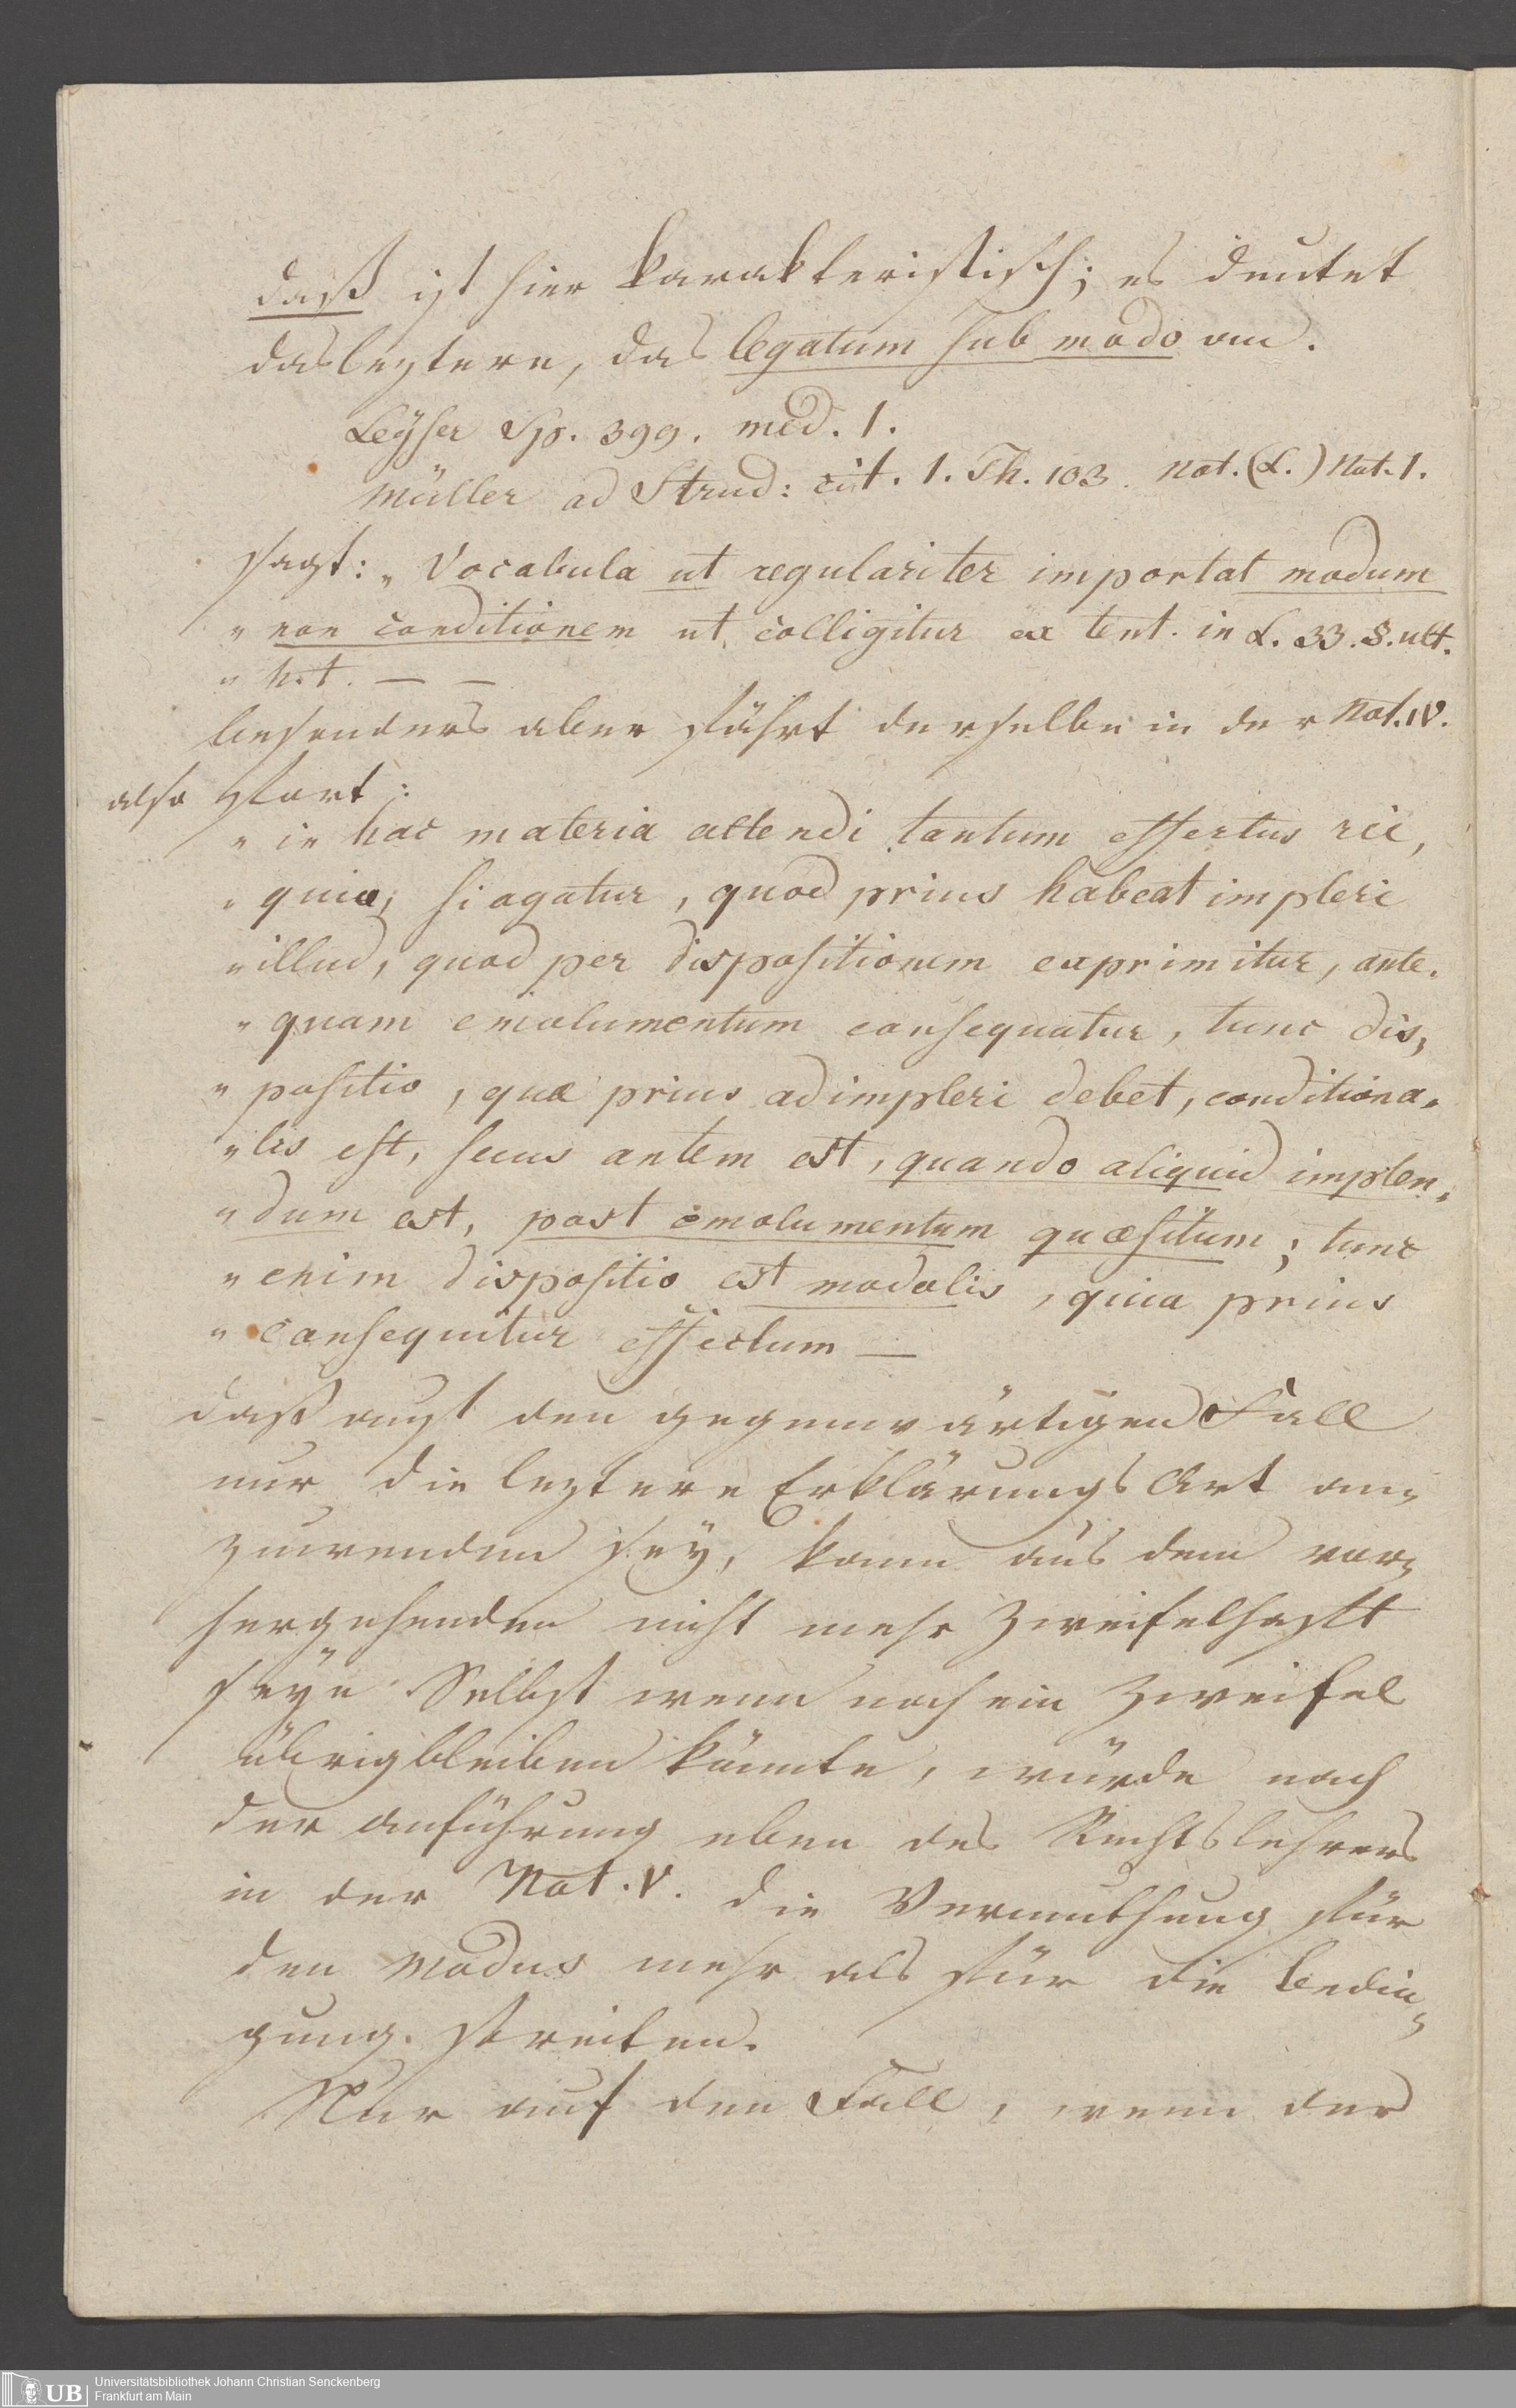 daß ist hier karakteristisch; es deutet
das leztere, das legatum sub modo an.
Leyser Sp. 399. med. 1.
Müller ad Strud: cit. 1. Th. 103. not. (L.) Not. 1.
sagt: „Vocabula ut regulariter importat modum
„non conditionem ut colligitur ex text. in L. 33. §. ult.
„h. t. — —
besonders aber fährt derselbe in der Not. IV.
also fort:
„in hac materia attendi tantum effectus rei,
„quia, si agatur, quod prius habeat impleri
„illud, quod per dispositionem exprimitur, ante-
„quam emolumentum consequatur, tunc dis,
„positio, quæ prius adimpleri debet, conditiona-
„lis est, secus autem est, quando aliquid implen-
„dum est, post emolumentum quæsitum; tunc
„enim dispositio est modalis, quia prius
„consequitur effectum —
daß auf den gegenwärtigen Fall
nur die leztere Erklärungs Art an-
zuwenden sey, kann aus dem vor-
hergehenden nicht mehr zweifelhaft
seyn. Selbst wenn noch ein Zweifel
übrigbleiben könnte, würde nach
der Anführung eben des Rechtslehrers
in der Not. V. die Vermuthung für
den Modus mehr als für die Bedin-
gung streiten.
Nur auf den Fall, wenn der
Universitätsbibliothek Johann Christian Senckenberg
Frankfurt am Main
UB